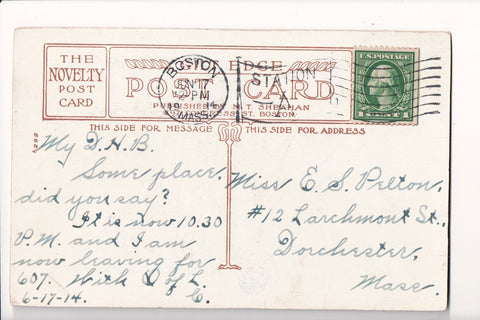 THE
NOVELTY
POST
CARD
EDGE
POST CARD
PUBLISHED BY M. T. SHEAHAN
CONGRESS ST. BOSTON.
BOSTON
JUN 17
PM
1914
MASS.
STATION
A
U.S. POSTAGE
THIS SIDE FOR MESSAGE
THIS SIDE FOR ADDRESS
My D.H.B.
Some place,
did you say?
It is now 10.30
P.M. and I am
now leaving for
607. With O of L
C.
6-17-14.
Miss E. S. Pelton,
#12 Larchmont St.,
Dorchester,
Mass.